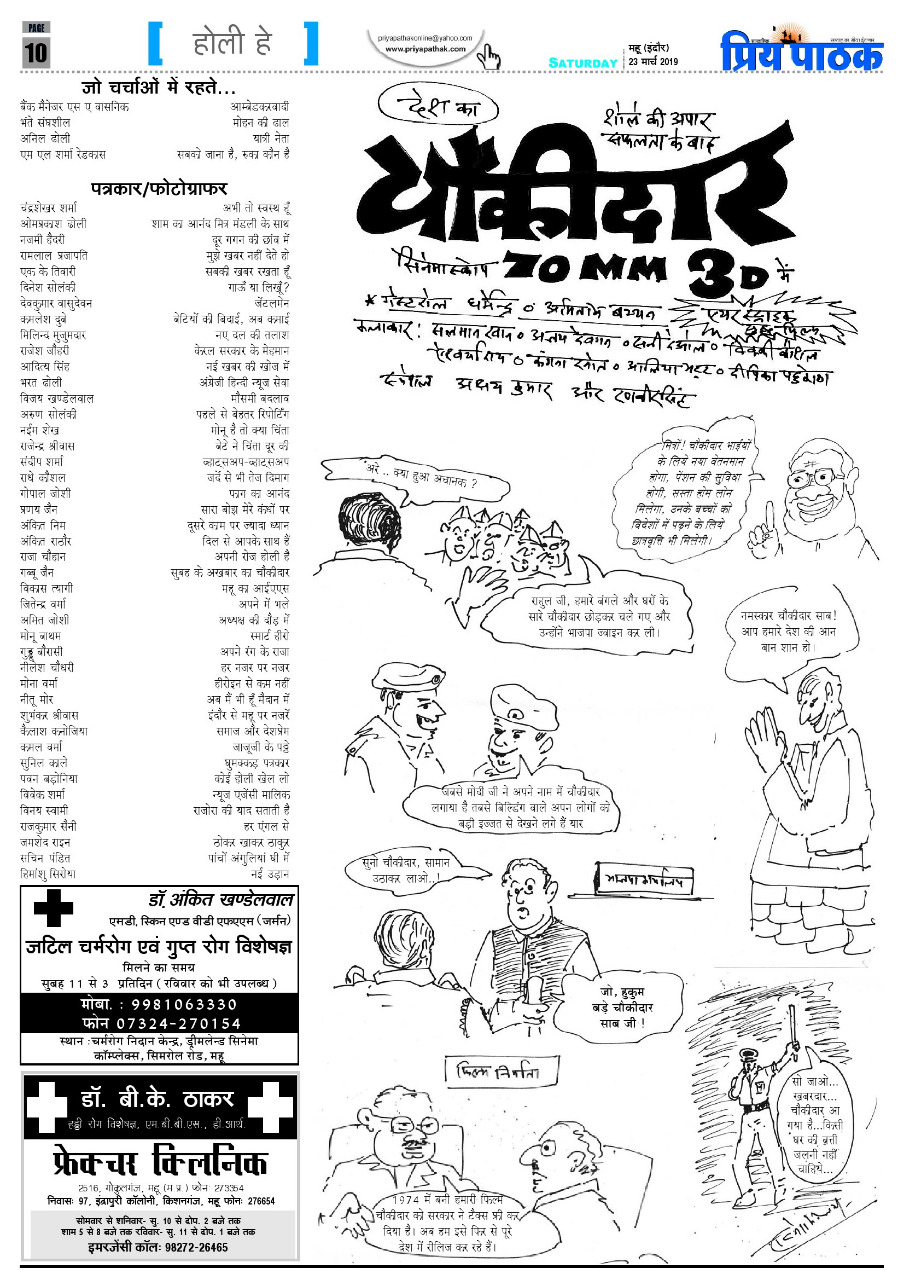 PAGE
10
[ होली हे ]
priyapathakonline@yahoo.com
www.priyapathak.com
SATURDAY
महू (इंदौर)
23 मार्च 2019
प्रिय पाठक
जो चर्चाओं में रहते...
बैंक मैनेजर एस ए वासनिक आम्बेडकरवादी
भंते संघशील मोहन की ढाल
अनिल ढोली यात्री नेता
एम एल शर्मा रेडक्रास सबको जाना है, रुका कौन है
पत्रकार/फोटोग्राफर
चंद्रशेखर शर्मा अभी तो स्वस्थ हूँ
ओमप्रकाश ढोली शाम का आनंद मित्र मंडली के साथ
नजमी हैदरी दूर गगन की छांव में
रामलाल प्रजापति मुझे खबर नहीं देते हो
एक के तिवारी सबकी खबर रखता हूँ
दिनेश सोलंकी गाऊँ या लिखूँ?
देवकुमार वासुदेवन जेंटलमेन
कमलेश दुबे बेटियों की बिदाई, अब कमाई
मिलिन्द मुजुमदार नए दल की तलाश
राजेश जौहरी केरल सरकार के मेहमान
आदित्य सिंह नई खबर की खोज में
भरत ढोली अंग्रेजी हिन्दी न्यूज सेवा
विजय खण्डेलवाल मौसमी बदलाव
अरुण सोलंकी पहले से बेहतर रिपोर्टिंग
नईम शेख मोनू है तो क्या चिंता
राजेन्द्र श्रीवास बेटे ने चिंता दूर की
संदीप शर्मा व्हाट्सअप-व्हाट्सअप
राधे कौशल जर्दे से भी तेज दिमाग
गोपाल जोशी फाग का आनंद
प्रणय जैन सारा बोझ मेरे कंधों पर
अंकित निम दूसरे काम पर ज्यादा ध्यान
अंकित राठौर दिल से आपके साथ हैं
राजा चौहान अपनी रोज होली है
गब्बू जैन सुबह के अखबार का चौकीदार
विकास त्यागी महू का आईएएस
जितेन्द्र वर्मा अपने में भले
अमित जोशी अध्यक्ष की दौड़ में
मोनू बाथम स्मार्ट हीरो
गुड्डू चौरासी अपने रंग के राजा
नीलेश चौधरी हर नजर पर नजर
मोना वर्मा हीरोइन से कम नहीं
नीतू मोर अब मैं भी हूँ मैदान में
शुभंकर श्रीवास इंदौर से महू पर नजरें
कैलाश कनोजिया समाज और देशप्रेम
कमल वर्मा जाजूजी के पट्ठे
सुनिल काले घुमक्कड़ पत्रकार
पवन बड़ोनिया कोई होली खेल लो
विवेक शर्मा न्यूज एजेंसी मालिक
विनय स्वामी राजोरा की याद सताती है
राजकुमार सैनी हर एंगल से
जमशेद राइन ठोकर खाकर ठाकुर
सचिन पंडित पांचों अंगुलियां घी में
हिमांशु सिरोया नई उड़ान
डॉ. अंकित खण्डेलवाल
एमडी, स्किन एण्ड वीडी एफएएम (जर्मन)
जटिल चर्मरोग एवं गुप्त रोग विशेषज्ञ
मिलने का समय
सुबह 11 से 3 प्रतिदिन (रविवार को भी उपलब्ध)
मोबा. : 9981063330
फोन 07324-270154
स्थान :चर्मरोग निदान केन्द्र, ड्रीमलेन्ड सिनेमा
कॉम्प्लेक्स, सिमरोल रोड, महू
डॉ. बी.के. ठाकर
हड्डी रोग विशेषज्ञ, एम.बी.बी.एस., डी.आर्थ.
फ्रेक्चर क्लिनिक
2516, गोकुलगंज, महू (म.प्र.) फोनः 273354
निवासः 97, इंद्रापुरी कॉलोनी, किशनगंज, महू फोनः 276654
सोमवार से शनिवार- सु. 10 से दोप. 2 बजे तक
शाम 5 से 8 बजे तक रविवार- सु. 11 से दोप. 1 बजे तक
इमरजेंसी कॉलः 98272-26465
देश का
शोले की अपार
सफलता के बाद
चौकीदार
सिनेमास्कोप 70MM 3D में
* गेस्टरोल धर्मेन्द्र ० अमिताभ बच्चन
एयर स्ट्राइक
कलाकार! सलमान खान ० अजय देवगन ० सनी देओल ० विक्की कौशल
ऐश्वर्या राय ० कंगना रनोत ० आलिया भट्ट ० दीपिका पदुकोण
स्पेशल अक्षय कुमार और रणवीरसिंह
अरे .. क्या हुआ अचानक ?
मित्रों! चौकीदार भाईयों
के लिये नया वेतनमान
होगा, पेंशन की सुविधा
होगी, सस्ता होम लोन
मिलेगा, उनके बच्चों को
विदेशों में पढ़ने के लिये
छात्रवृत्ति भी मिलेगी।
राहुल जी, हमारे बंगले और घरों के
सारे चौकीदार छोड़कर चले गए और
उन्होंने भाजपा ज्वाइन कर ली।
नमस्कार चौकीदार साब!
आप हमारे देश की आन
बान शान हो।
जबसे मोदी जी ने अपने नाम में चौकीदार
लगाया है तबसे बिल्डिंग वाले अपन लोगों को
बड़ी इज्जत से देखने लगे हैं यार
सुनो चौकीदार, सामान
उठाकर लाओ..!
भाजपा कार्यालय
जो, हुकुम
बड़े चौकीदार
साब जी !
फिल्म निर्माता
सो जाओ...
खबरदार...
चौकीदार आ
गया है...किसी
घर की बत्ती
जलनी नहीं
चाहिये...
1974 में बनी हमारी फिल्म
चौकीदार को सरकार ने टैक्स फ्री कर
दिया है। अब हम इसे फिर से पूरे
देश में रीलिज कर रहे हैं।